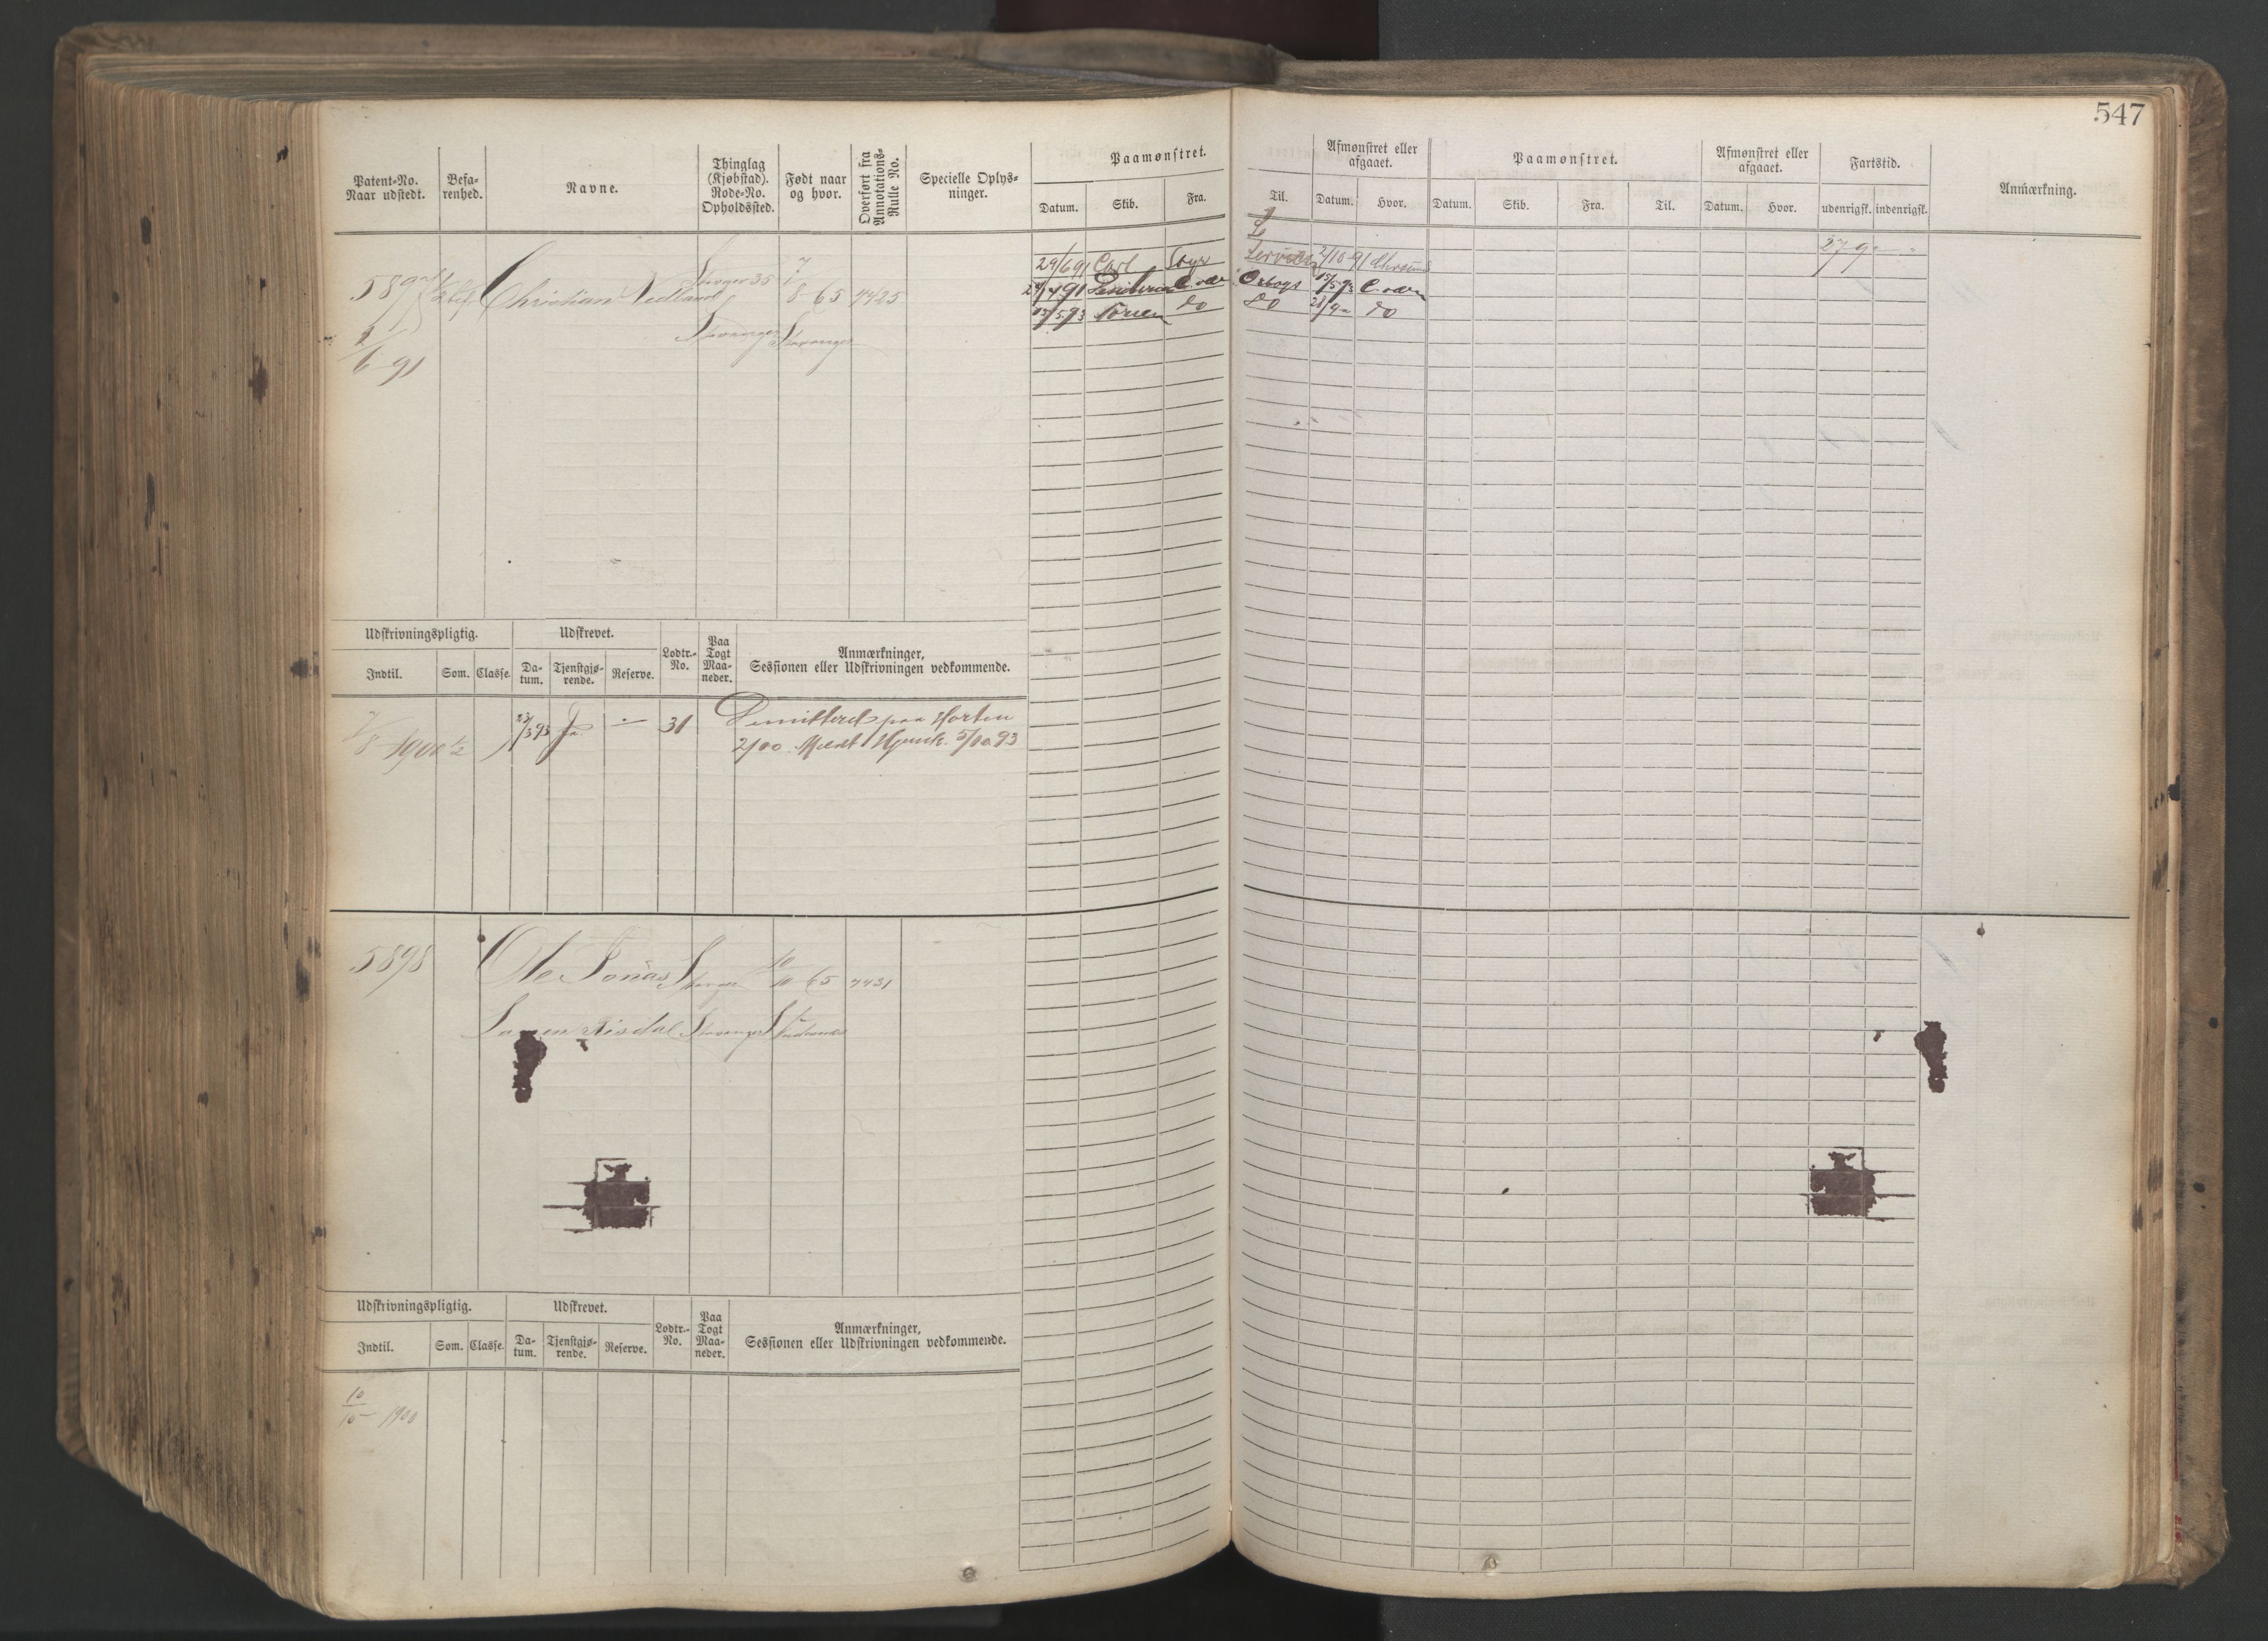 547
Patent-No. Naar udstedt.
Befa-renhed.
Navne.
Thinglag (Kjøbstad). Rode-No. Opholdssted.
Født naar og hvor.
Overført fra Annotations-Rulle No.
Specielle Oplys-ninger.
Paamønstret.
Datum. Skib. Fra. Til.
Afmønstret eller afgaaet.
Datum. Hvor.
Paamønstret.
Datum. Skib. Fra. Til.
Afmønstret eller afgaaet.
Datum. Hvor.
Fartstid.
udenrigsk. indenrigsk.
Anmærkning.
Christian Nedland
8 65 4425
Stavanger Stavanger
2/6 91
29/6 91 Carl
2/10 91
15/5 93 do
Do do
Udskrivningspligtig.
Indtil. Som. Classe.
Udskrevet.
Da-tum. Tjenstgjø-rende. Reserve.
Lodtr.-No.
Paa Togt Maa-neder.
Anmærkninger, Sessionen eller Udskrivningen vedkommende.
23/3 93 Ja - 31 Dimitteret paa Horten
2/10. Meldt Hjemk. 5/10 93
5898 Ole Jonas 10/10 65 4431
Risdal Stavanger
Udskrivningspligtig.
Indtil. Som. Classe.
Udskrevet.
Da-tum. Tjenstgjø-rende. Reserve.
Lodtr.-No.
Paa Togt Maa-neder.
Anmærkninger, Sessionen eller Udskrivningen vedkommende.
10/10 1900